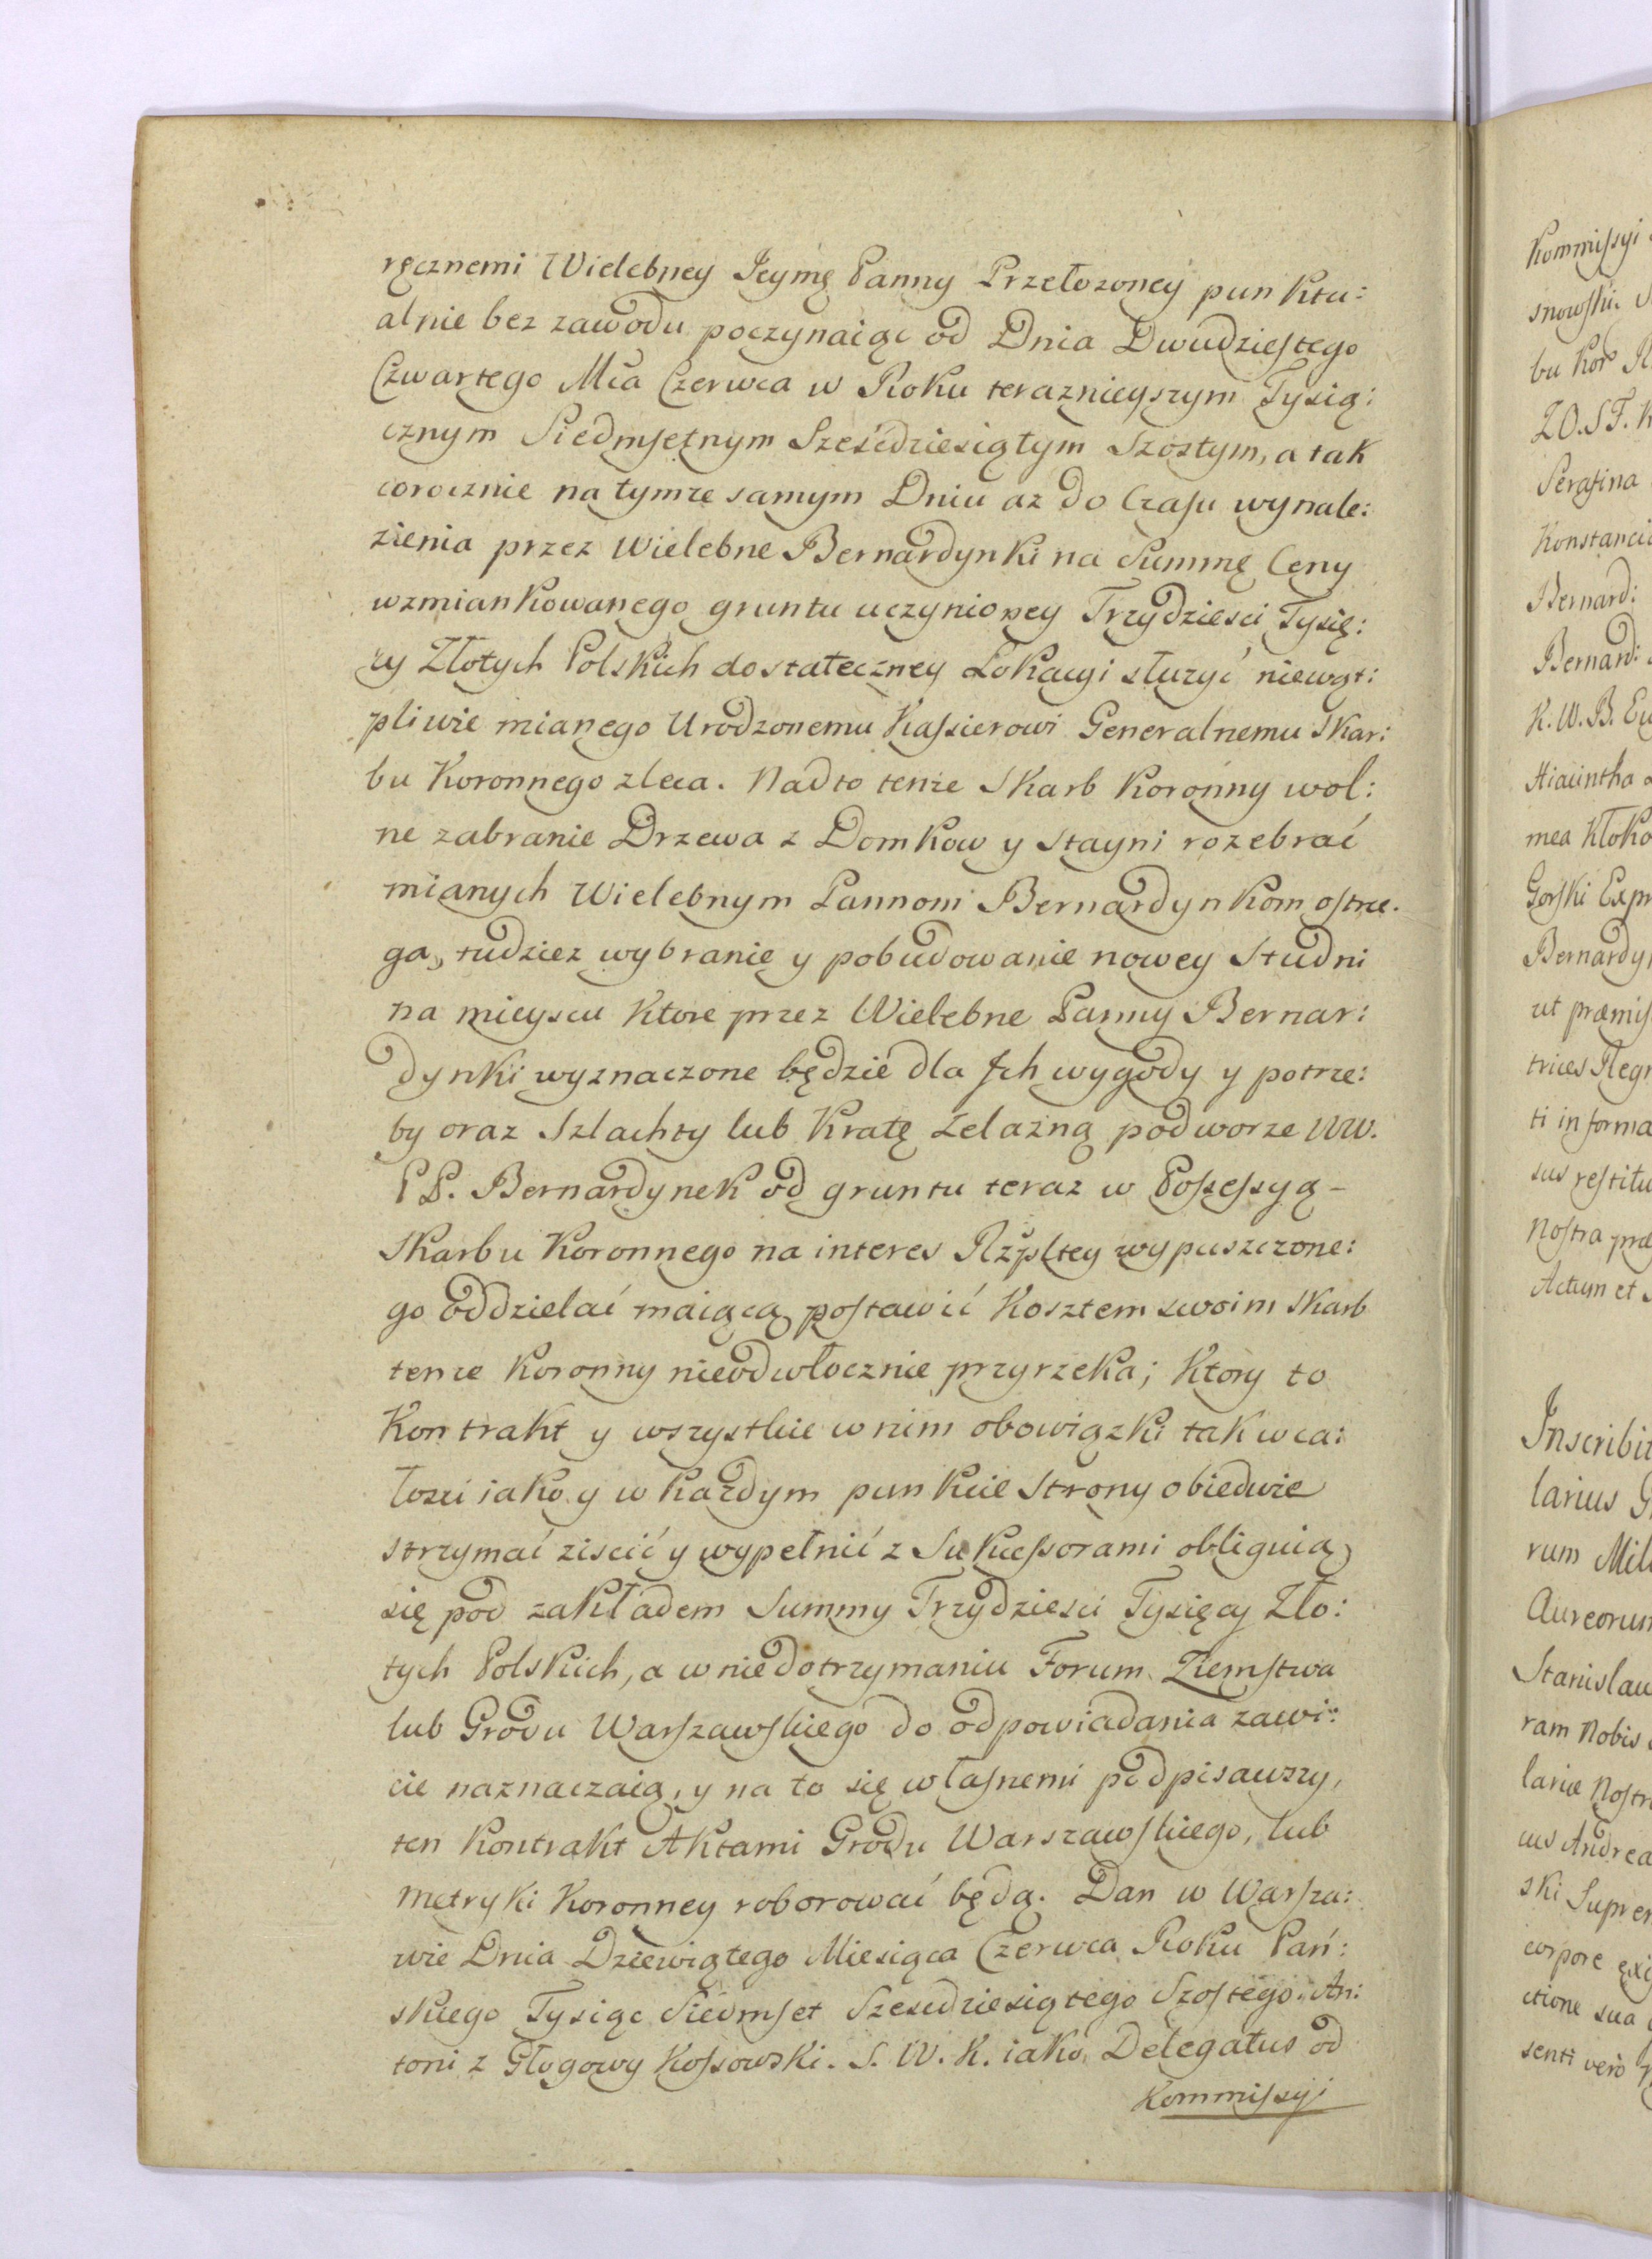 ręcznemi Wielebney Jeymę Panny Przełozoney punktu:
alnie bez zawodu poczynaiąc od Dnia Dwudziestego
Czwartego Mca Czerwca w Roku teraznieyszym Tysią:
cznym Siedmsetnym Sześćdziesiątym Szostym, a tak
corocznie na tymze samym Dniu az do Czasu wynale:
zienia przez Wielebne Bernardynki na Summę Ceny
wzmiankowanego gruntu uczynioney Trzydziesci Tysię:
cy Złotych Polskich dostateczney Lokacyi służyć niewąt:
pliwie mianego Urodzonemu Kassierowi Generalnemu Skar:
bu Koronnego zleca. Nadto tenze Skarb Koronny wol:
ne zabranie Drzewa z Domkow y Stayni rozebrać
mianych Wielebnym Pannom Bernardynkom ostrze.
ga, tudziez wybranie y pobudowanie nowey Studni
na mieyscu Ktore przez Wielebne Panny Bernar:
dynki wyznaczone będzie dla Ich wygody y potrze:
by oraz Szlachty lub Kratę Zelazną podworze WW.
PP. Bernardynek od gruntu teraz w Possessyą -
Skarbu Koronnego na interes Rzpltey wypuszczone:
go oddzielać maiącą postawić Kosztem swoim Skarb
tenze Koronny nieodwłocznie przyrzeka; Ktory to
Kontrakt y wszystkie w nim obowiązki tak w ca:
łosci iako y w każdym punkcie Strony obiedwie
strzymać ziscić y wypełnić z Sukcessorami obliguią
się pod zakładem Summy Trzydziesci Tysięcy Zło:
tych Polskich, a w niedotrzymaniu Forum Ziemstwa
lub Grodu Warszawskiego do odpowiadania zawi:
cie naznaczaią, y na to się własnemi podpisawszy,
ten Kontrakt Aktami Grodu Warszawskiego, lub
metryki Koronney roborować będą. Dan w Warsza:
wie Dnia Dziewiątego Miesiąca Czerwca Roku Pań:
skiego Tysiąc Siedmset Szescdziesiątego Szostego. An:
toni z Głogowy Kossowski. S. W. K. iako Delegatus od
Kommissyi
Kommissyi
bu Kor
Serafina
Bernard:
Bernard:
K. W. B.
Hiacintha
mea
Gorski
ti in forma
Nostra
Actum et
larius
rum
ram Nobis
ski
corpore
ctione sua
senti vero